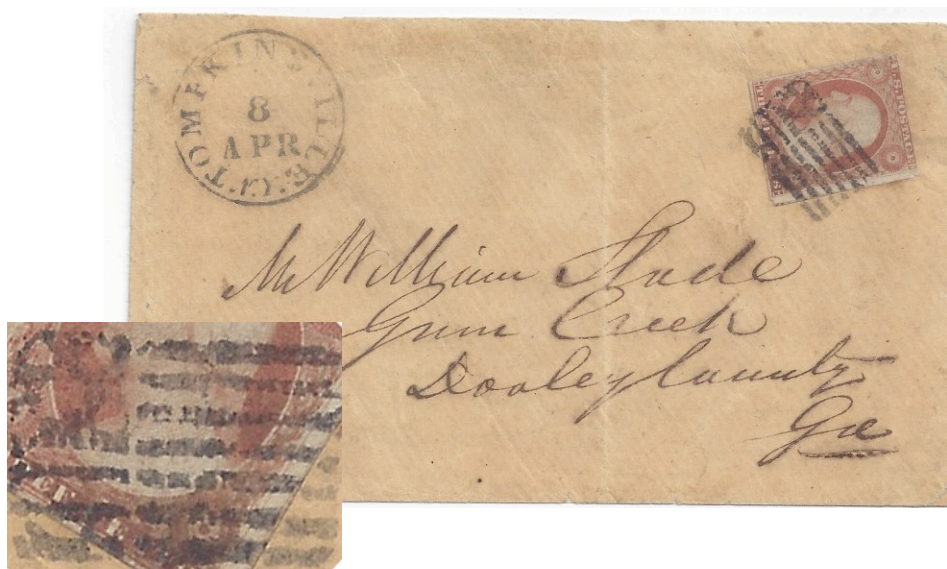 TOMPKINSVILLE Ky
8
APR
U.S. POSTAGE
Mr William Slade
Gum Creek
Dooley County
Ga